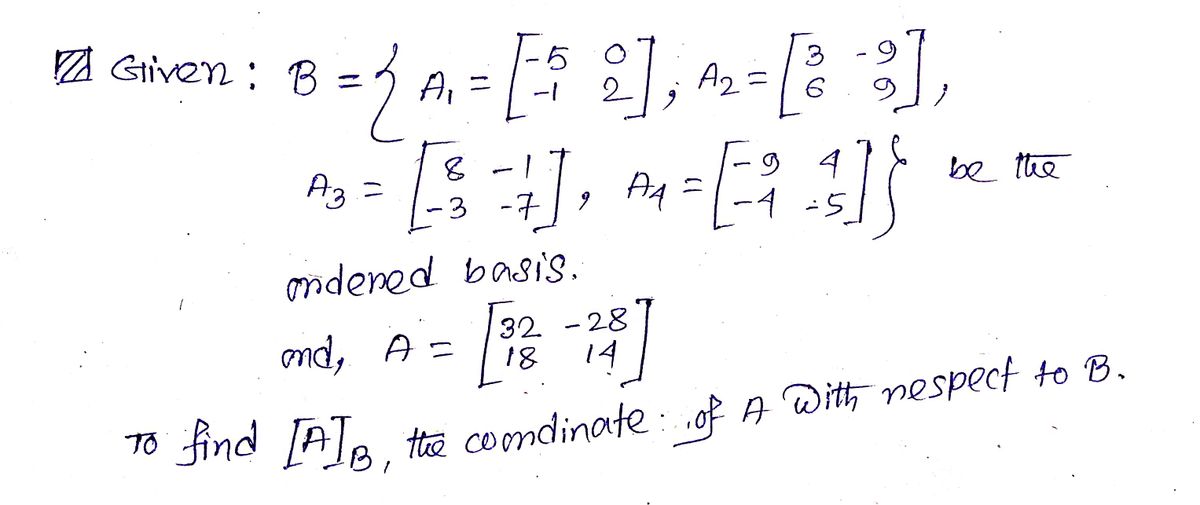 Given : B = { A₁ = [-5 0; -1 2], A₂ = [3 -9; 6 9],
A₃ = [8 -1; -3 -7], A₄ = [-9 4; -4 -5] } be the
ordered basis.
and, A = [32 -28; 18 14]
To find [A]B, the coordinate : of A with respect to B.